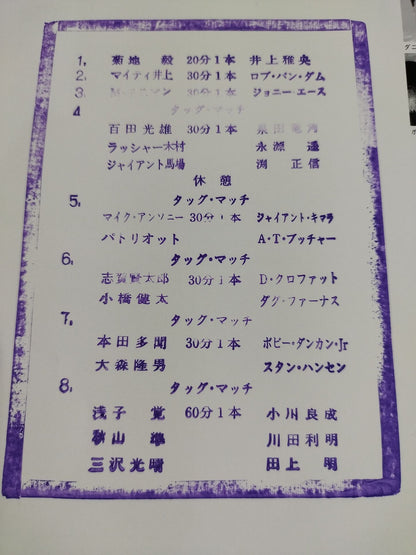 1, 菊地 毅 20分1本 井上雅央
2. マイティ井上 30分1本 ロブ・バン・ダム
3. マン 30分1本 ジョニーエース
4 タッグ・マッチ
百田光雄 30分1本 泉田竜角
ラッシャー木村 永源 遥
ジャイアント馬場 渕 正信
休憩
5. タッグ・マッチ
マイク・アンソニー 30分1本 ジャイアント・キマラ
パトリオット A・T・ブッチャー
6. タッグ・マッチ
志賀賢太郎 30分1本 D・クロファット
小橋健太 ダグ・ファーナス
7. タッグ・マッチ
本田多聞 30分1本 ボビー・ダンカン・Jr
大森隆男 スタン・ハンセン
8. タッグ・マッチ
浅子 覚 60分1本 小川良成
秋山 準 川田利明
三沢光晴 田上 明